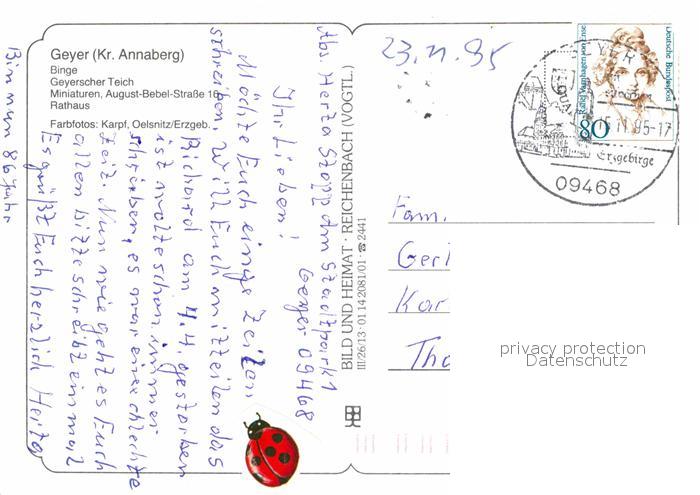 Geyer (Kr. Annaberg)
Binge
Geyerscher Teich
Miniaturen, August-Bebel-Straße 16
Rathaus
Farbfotos: Karpf, Oelsnitz/Erzgeb.
Abs Herta Stadtpark 1
Geyer 09468
Ihr Lieben!
Möchte Euch einige Zeilen
schreiben, will Euch mitteilen das
Richard am 4.4. gestorben
ist wollte schon immer
schreiben, es war eine schlechte
Zeit. Nun wie geht es Euch
allen bitte schreibt einmal
Es grüßt Euch herzlich Herta
Bin nun 86 Jahr
BILD UND HEIMAT · REICHENBACH (VOGTL.)
III/26/13 · 01 14 2081/01 · ☎ 2441
23.11.95
GEYER
15-17
Erzgebirge
09468
Deutsche Bundespost
Rahel Varnhagen von Ense
80
Fam.
Ger
Kar
Tho
privacy protection
Datenschutz